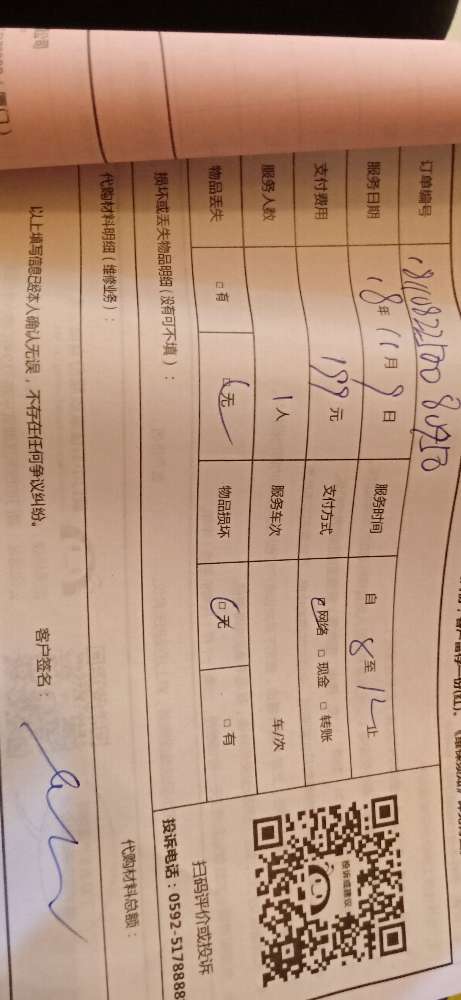 订单编号
服务日期 18年 11月 9日 服务时间 自 8 至 12 止
支付费用 199 元 支付方式 网络 □ 现金 □ 转账
服务人数 1 人 服务车次 车/次
物品丢失 □ 有 □ 无 物品损坏 □ 无 □ 有
损坏或丢失物品明细(没有可不填):
代购材料明细(维修业务):
代购材料总额:
投诉或建议
扫码评价或投诉
投诉电话:0592-5178888
以上填写信息已经本人确认无误,不存在任何争议纠纷。 客户签名: